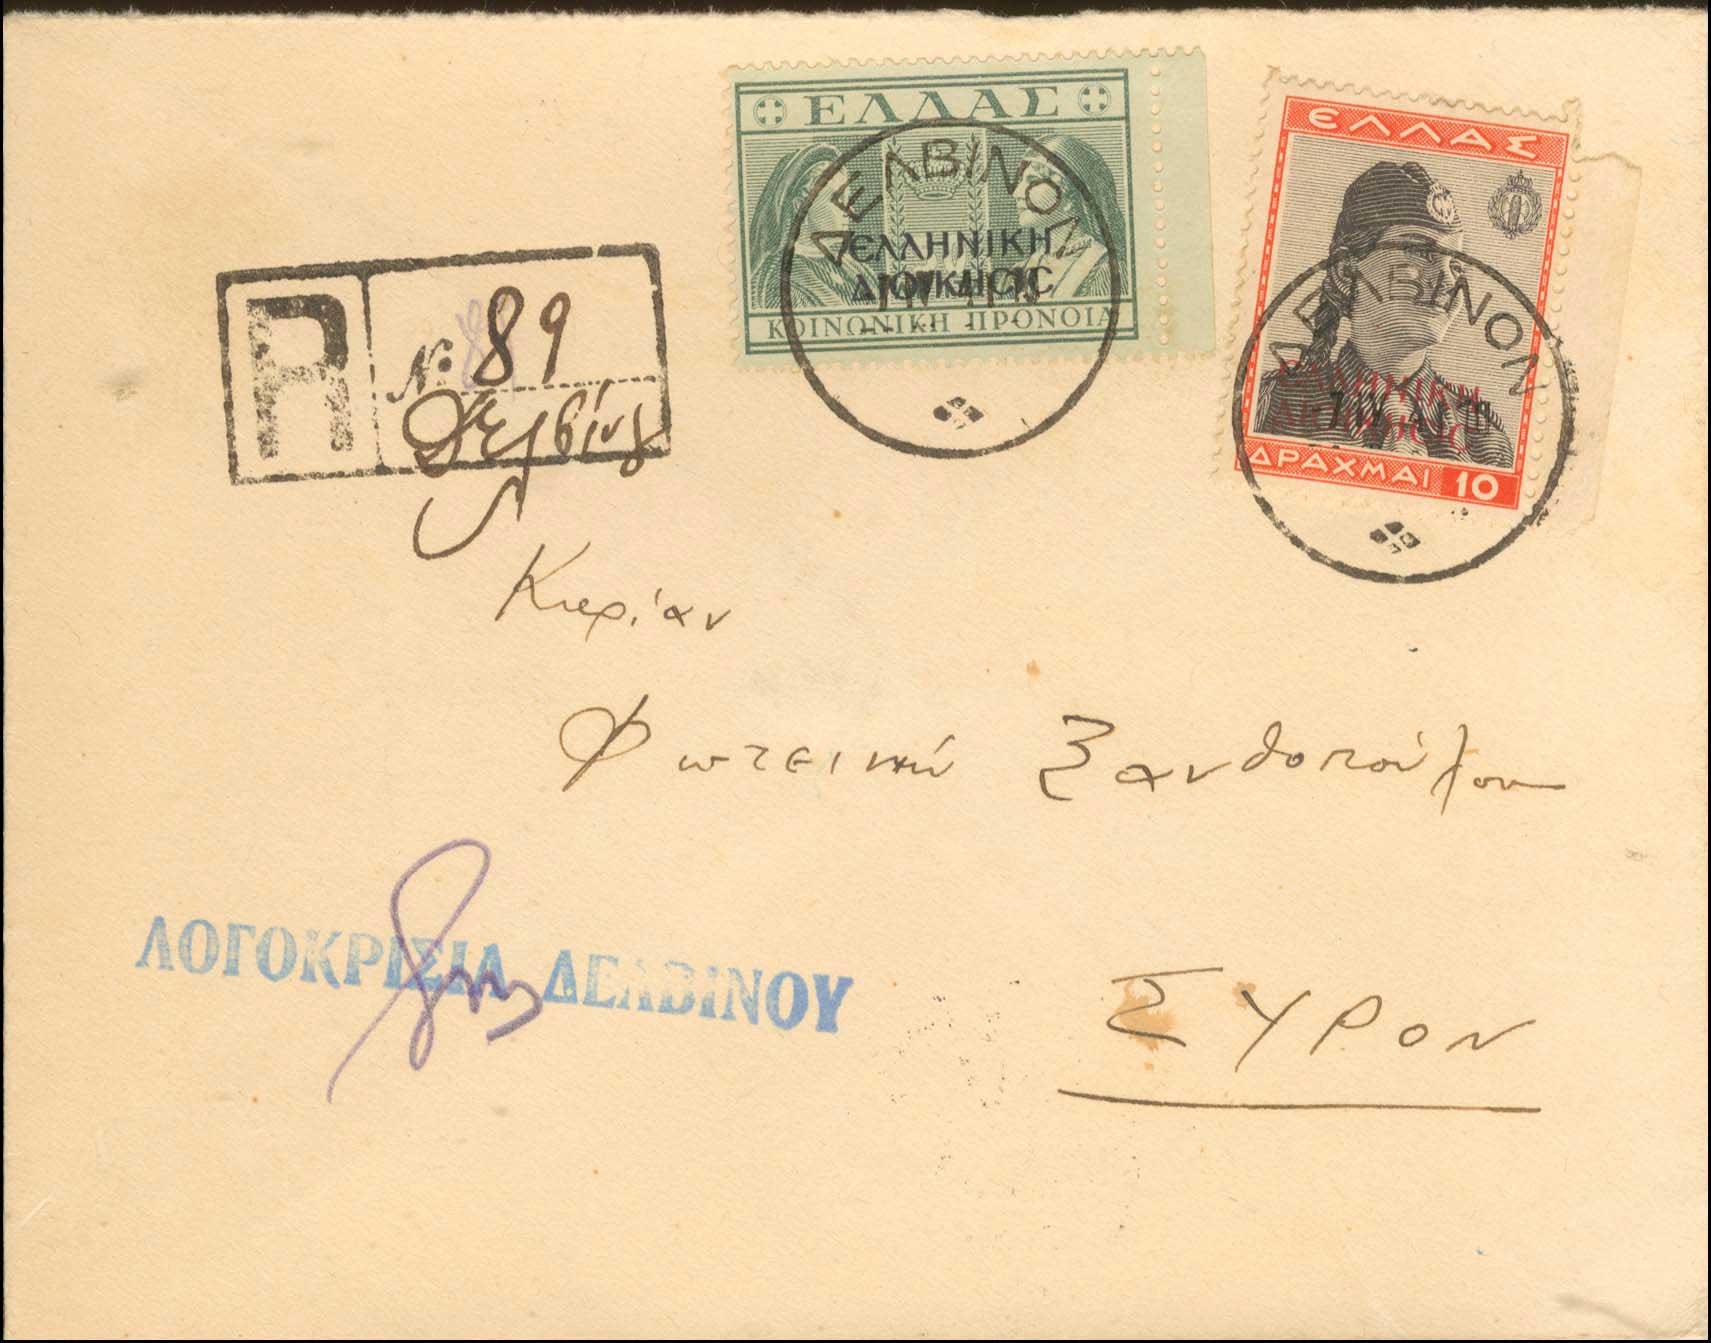 ΕΛΛΑΣ
ΔΕΛΒΙΝΟΝ
ΕΛΛΗΝΙΚΗ
ΔΙΟΙΚΗСΙС
ΚΟΙΝΩΝΙΚΗ ΠΡΟΝΟΙΑ
ΕΛΛΑΣ
ΔΕΛΒΙΝΟΝ
ΕΛΛΗΝΙΚΗ
ΔΙΟΙΚΗСΙС
7 IV 41
ΔΡΑΧΜΑΙ 10
R
No 89
Δελβίνου
Κυρίαν
Φωτεινήν Ξανθοπούλου
ΛΟΓΟΚΡΙΣΙΑ ΔΕΛΒΙΝΟΥ
ΣΥΡΟΝ